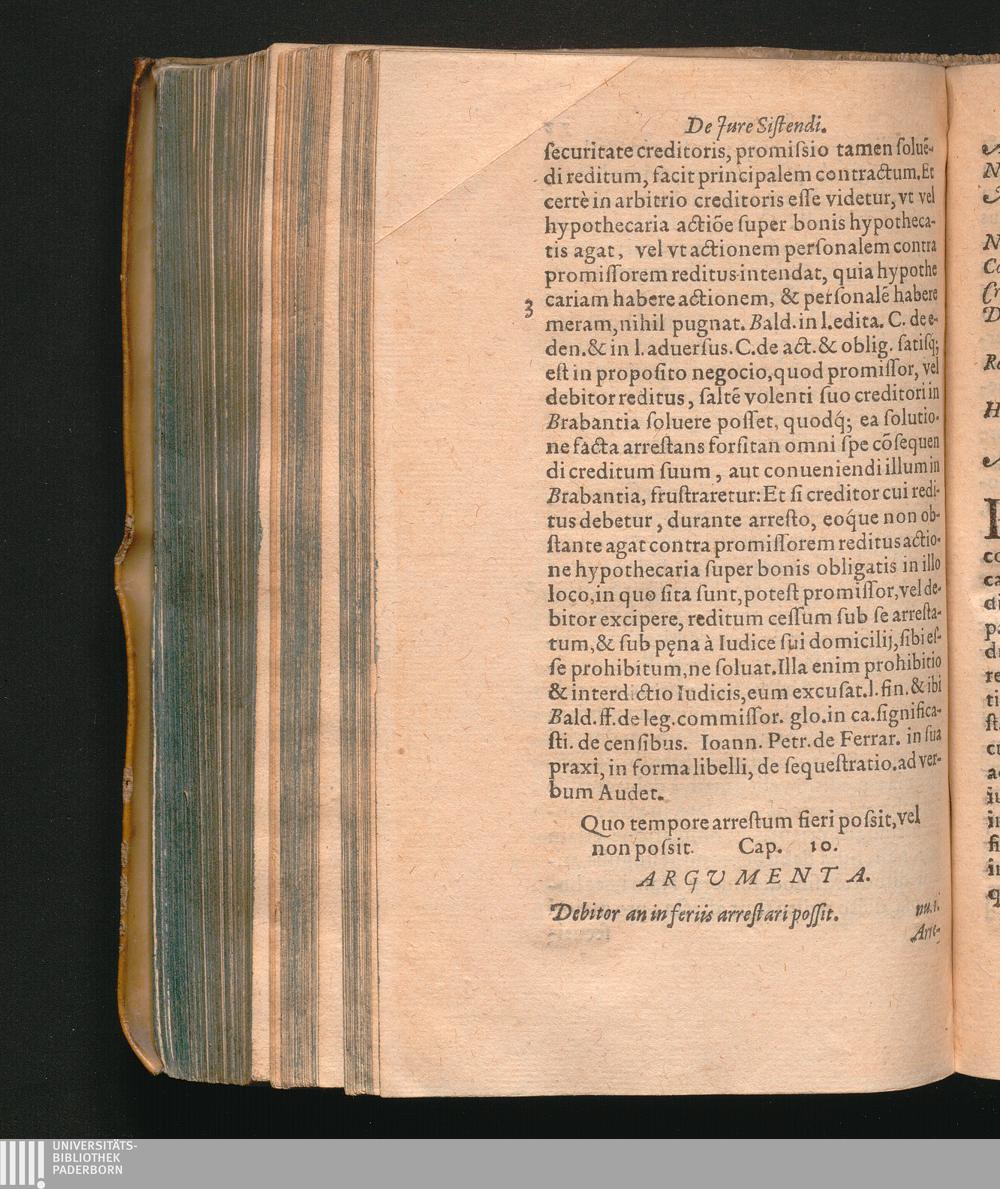 De Jure Siſtendi.
ſecuritate creditoris, promiſsio tamen ſoluē-
di reditum, facit principalem contractum. Et
certè in arbitrio creditoris eſſe videtur, vt vel
hypothecaria actiōe ſuper bonis hypotheca-
tis agat, vel vt actionem perſonalem contra
promiſſorem reditus intendat, quia hypothe
3 cariam habere actionem, & perſonalē habere
meram, nihil pugnat. Bald. in l. edita. C. de e-
den. & in l. aduerſus. C. de act. & oblig. ſatiſq;
eſt in propoſito negocio, quod promiſſor, vel
debitor reditus, ſaltē volenti ſuo creditori in
Brabantia ſoluere poſſet, quodq́; ea ſolutio-
ne facta arreſtans forſitan omni ſpe cōſequen
di creditum ſuum, aut conueniendi illum in
Brabantia, fruſtraretur: Et ſi creditor cui redi-
tus debetur, durante arreſto, eoq́ue non ob-
ſtante agat contra promiſſorem reditus actio-
ne hypothecaria ſuper bonis obligatis in illo
loco, in quo ſita ſunt, poteſt promiſſor, vel de-
bitor excipere, reditum ceſſum ſub ſe arreſta-
tum, & ſub pęna à Iudice ſui domicilij, ſibi eſ-
ſe prohibitum, ne ſoluat. Illa enim prohibitio
& interdictio Iudicis, eum excuſat. l. fin. & ibi
Bald. ff. de leg. commiſſor. glo. in ca. ſignifica-
ſti. de cenſibus. Ioann. Petr. de Ferrar. in ſua
praxi, in forma libelli, de ſequeſtratio. ad ver-
bum Audet.
Quo tempore arreſtum fieri poſsit, vel
non poſsit. Cap. 10.
ARGVMENTA.
Debitor an in feriis arreſtari poſſit. nu. 1.
UNIVERSITÄTS-
BIBLIOTHEK
PADERBORN